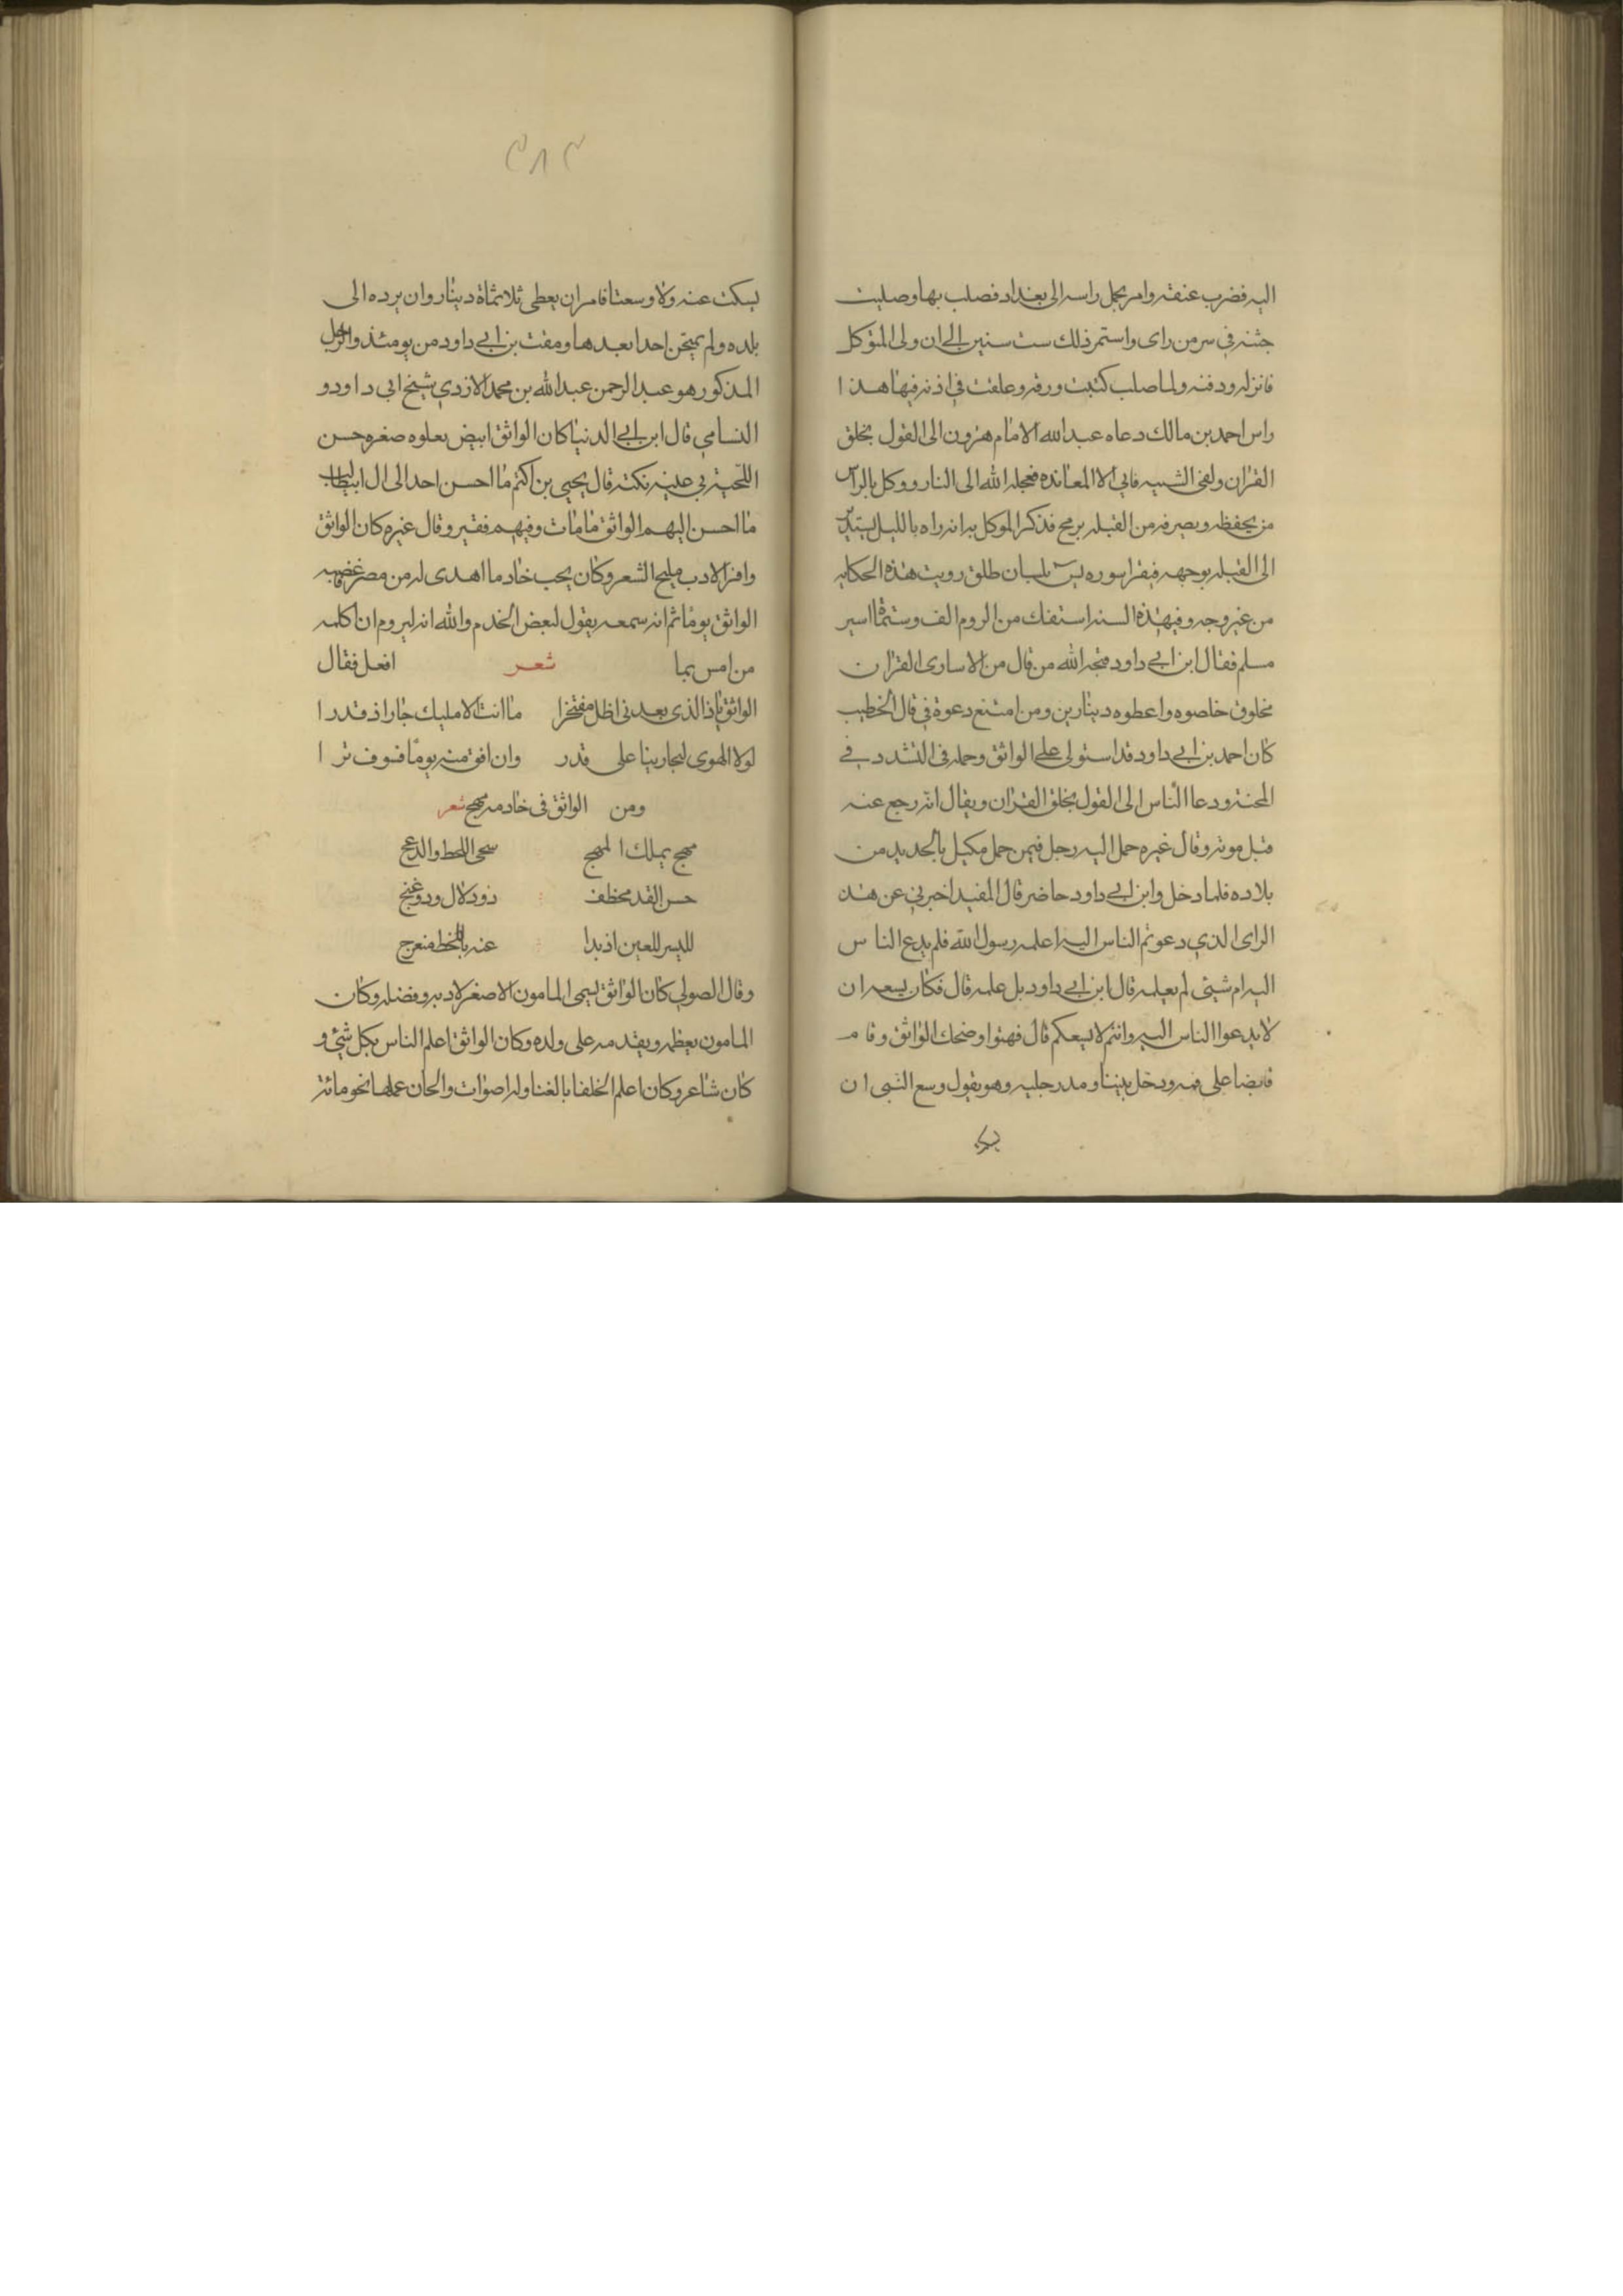 اليه فضرب عنقه وامر بحمل راسه الى بغداد فصلب بها وصليت
جثته في سر من راى واستمر ذلك ست سنين الى ان ولى المتوكل
فانزله ودفنه ولما صلب كتبت ورقه وعلقت في اذنه فيها هذا
راس احمد بن مالك دعاه عبد الله الامام هرون الى القول بخلق
القران ولفى التشبيه فابي الا المعانده فعجله الله الى النار ووكل بالراس
من يحفظه ويصرفه من القبله برمح فذكر الموكل به انه راه بالليل يستدير
الى القبله بوجهه فيقرا سوره يس بلسان طلق رويت هذه الحكايه
من غير وجه وفي هذه السنه استفك من الروم الف وستمائة اسير
مسلم فقال ابن ابي داود قبحه الله من قال من الاسارى القران
مخلوق خلصوه واعطوه دينارين ومن امتنع دعوة في قال الخطيب
كان احمد بن ابي داود قد استولى على الواثق وحمله في التشدد في
المحنة ودعا الناس الى القول بخلق القران ويقال انه رجع عنه
قبل موته وقال غيره حمل اليه رجل فيمن حمل مكبل بالحديد من
بلاده فلما دخل وابن ابي داود حاضر قال المقيد اخبرني عن هذ
الراى الذي دعوتم الناس اليه اعلمه رسول الله فلم يدع الناس
اليه ام شيئ لم يعلمه قال ابن ابي داود بل علمه قال فكان يسعه ان
لا يدعوا الناس اليه وانتم لا يسعكم قال فهتوا وضحك الواثق وقام
قابضا على فمه ودخل بيتنا ومد رجليه وهو يقول وسع النبى ان
٣٨٣
يسكت عنه ولا وسعنا فامر ان يعطى ثلاثمائة دينار وان يرده الى
بلده ولم يمتحن احدا بعدها ومقت بن ابي داود من يومئذ والرجل
المذكور هو عبد الرحمن عبد الله بن محمد الازدي شيخ ابي داود و
النسامي قال ابن ابي الدنيا كان الواثق ابيض يعلوه صفره حسن
اللحية في عينه نكته قال يحيى بن اكثم ما احسن احد الى ال ابيطالب
ما احسن اليهم الواثق ما مات وفيهم فقير وقال غيره كان الواثق
وافر الادب مليح الشعر وكان يحب خادما اهدى له من مصر فاغضبه
الواثق يوما ثم انه سمعه يقول لبعض الخدم والله انه ليروم ان اكلمه
من امس بما شعر افعل فقال
الواثق ياذا الذى بعدني اظل مفتخرا ما انت الا مليك جار اذ قدرا
لولا الهوى لتجارينا على قدر وان افق منه يوما فسوف ترا
ومن الواثق فى خادمه مهج شعر
مهج يملك المهج سجى اللحظ والدعج
حسن القد مخطف ذو دلال وذو غنج
لليس للعين اذ بدا عنه باللحظ منعرج
وقال الصولي كان الواثق يسمى المامون الاصغر لادبه وفضله وكان
المامون يعظمه ويقدمه على ولده وكان الواثق اعلم الناس بكل شيئ و
كان شاعر وكان اعلم الخلفا بالغنا وله اصوات والحان عملها نحو مائة